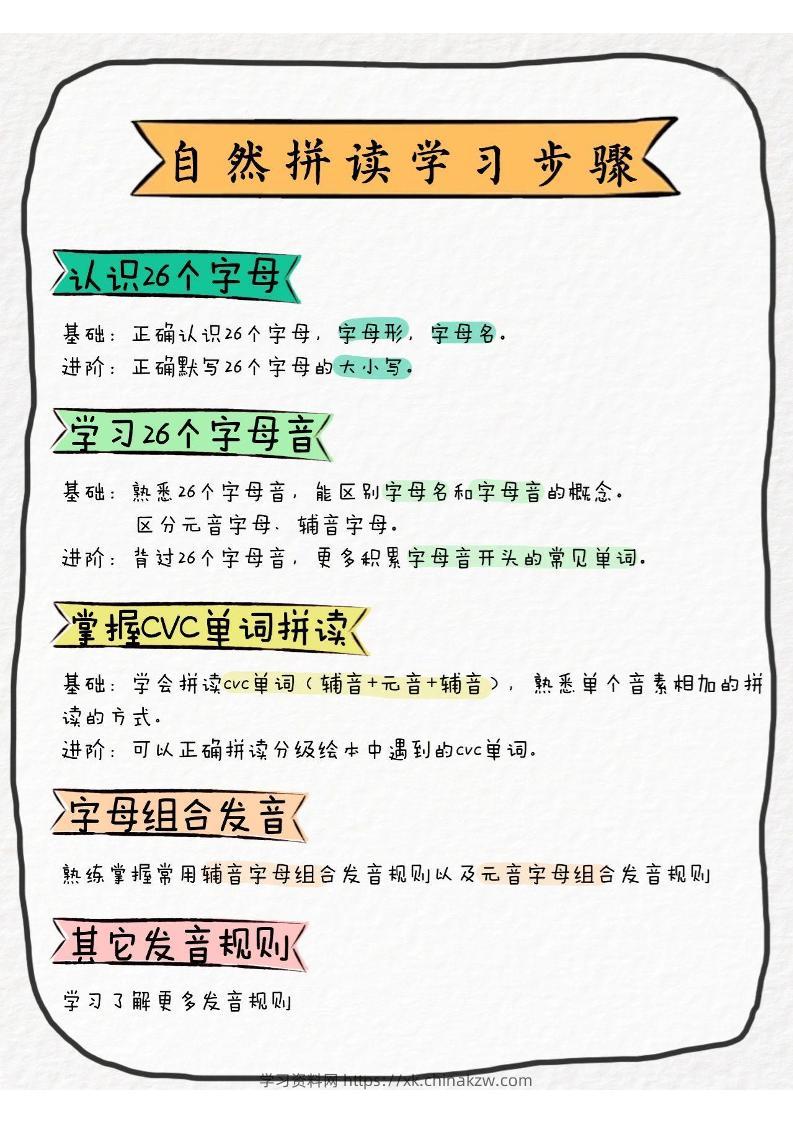 自然拼读学习步骤
认识26个字母
基础：正确认识26个字母，字母形，字母名。
进阶：正确默写26个字母的大小写。
学习26个字母音
基础：熟悉26个字母音，能区别字母名和字母音的概念。
区分元音字母、辅音字母。
进阶：背过26个字母音，更多积累字母音开头的常见单词。
掌握CVC单词拼读
基础：学会拼读cvc单词（辅音+元音+辅音），熟悉单个音素相加的拼
读的方式。
进阶：可以正确拼读分级绘本中遇到的cvc单词。
字母组合发音
熟练掌握常用辅音字母组合发音规则以及元音字母组合发音规则
其它发音规则
学习了解更多发音规则
学习资料网 https://xk.chinakzw.com